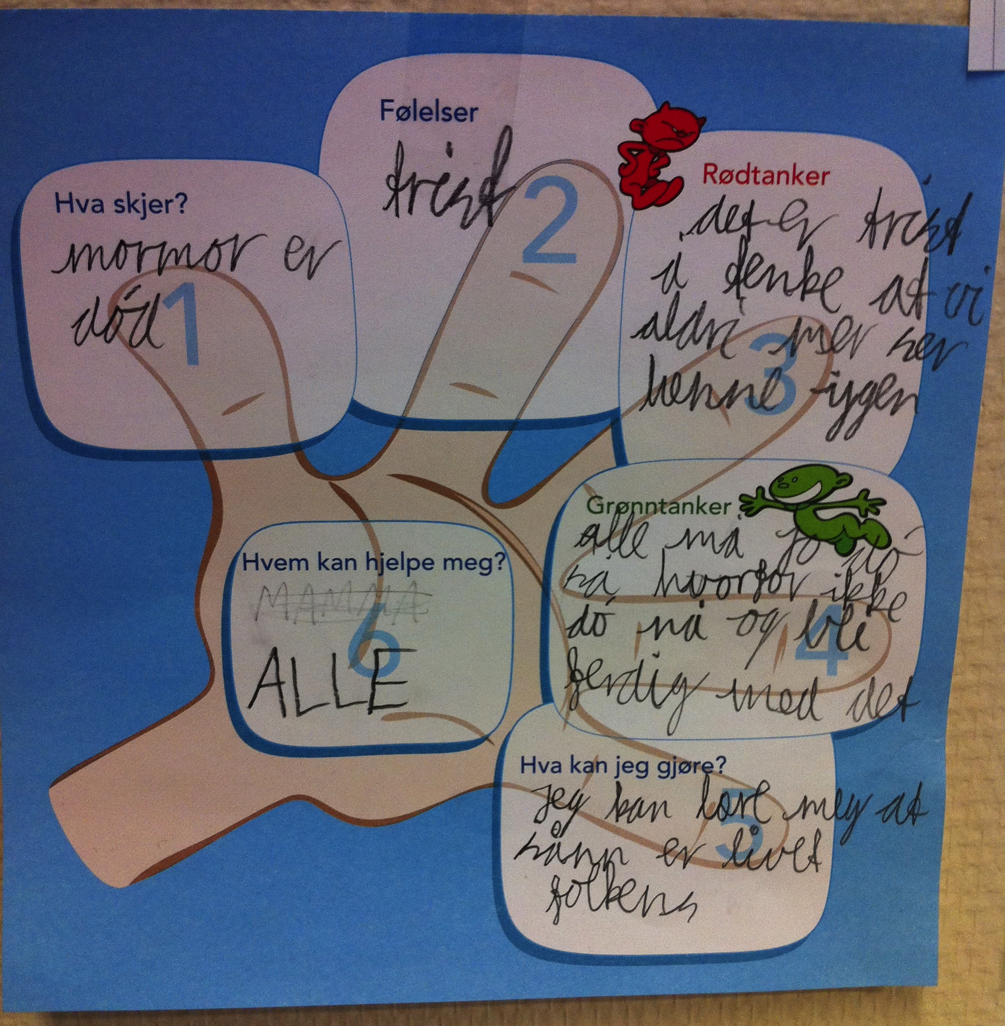 Hva skjer?
mormor er
død
1
Følelser
trist
2
Rødtanker
det er trist
å tenke at vi
aldri mer ser
henne iggen
3
Grønntanker
alle må jo dø
så hvorfor ikke
dø nå og bli
ferdig med det
4
Hva kan jeg gjøre?
jeg kan lære meg at
sånn er livet
folkens
5
Hvem kan hjelpe meg?
MAMMA
ALLE
6